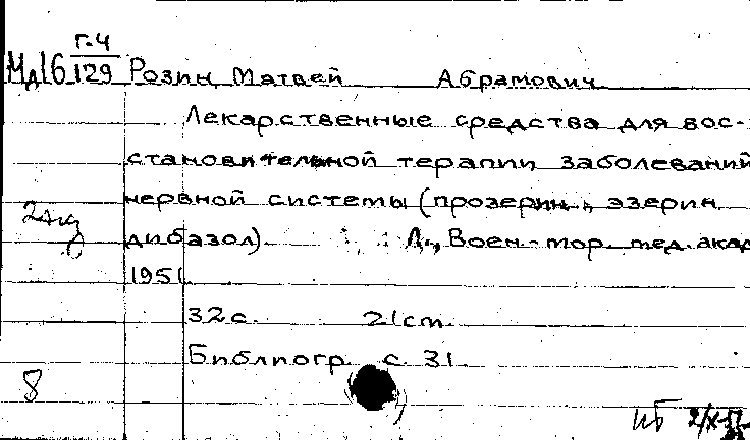 Г-4
Мд16 129 Розин, Матвей Абрамович
Лекарственные средства для вос-
становительной терапии заболеваний
нервной системы (прозерин, эзерин
2 экз
дибазол). Л., Воен.-мор. мед. акад
1951
32 с. 21 см.
Библиогр. с. 31
8